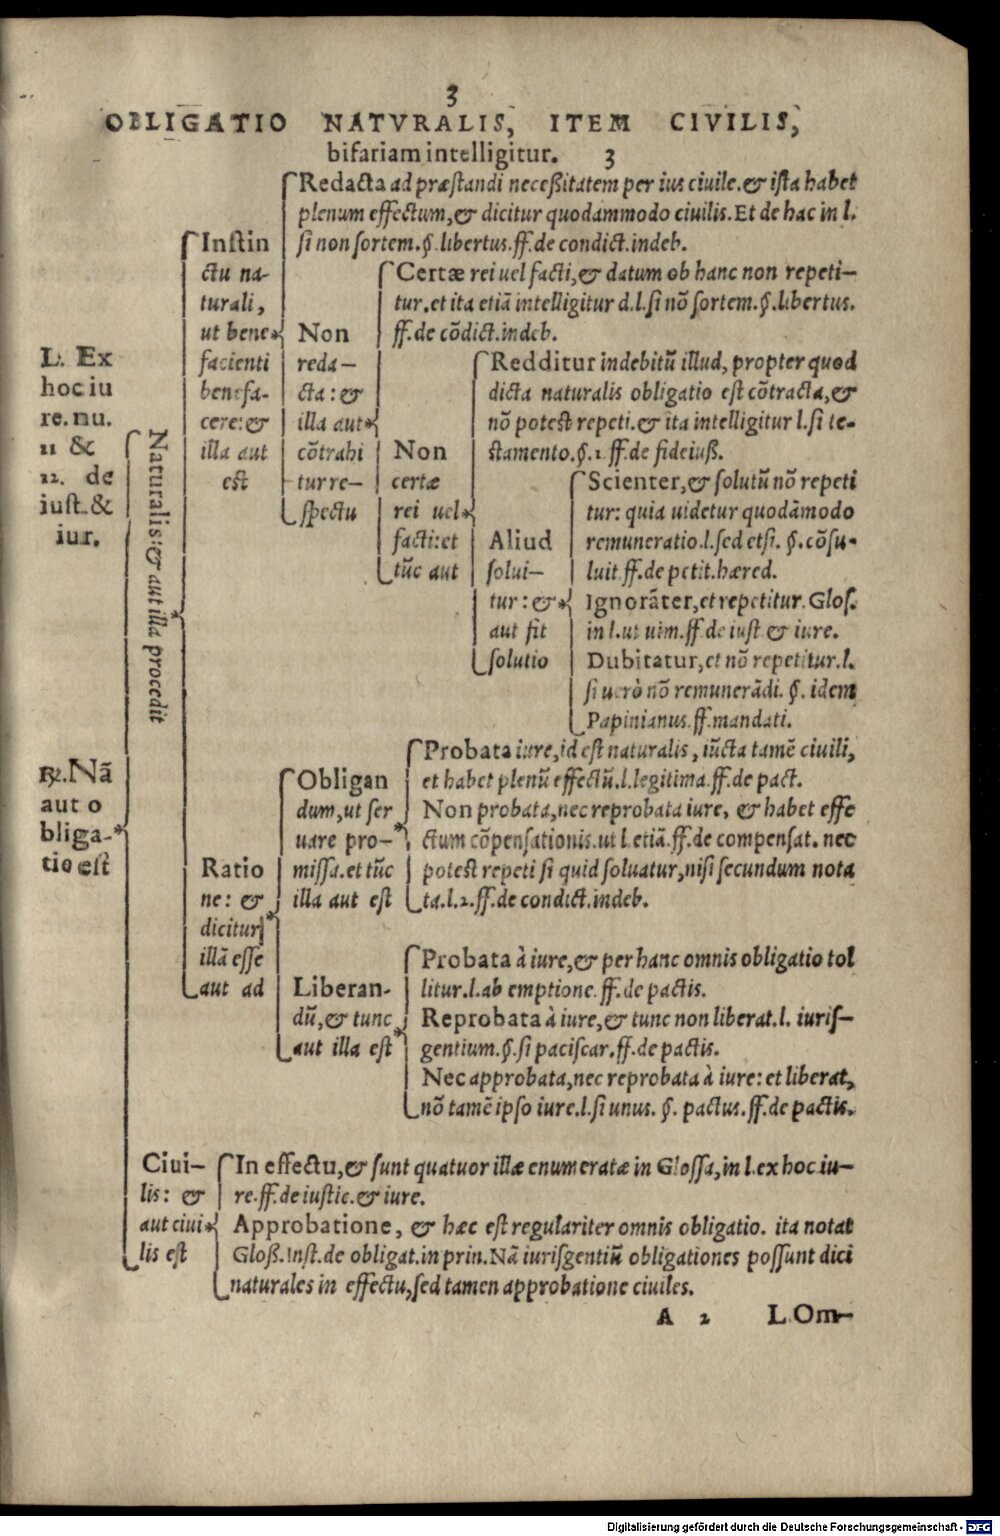 3
OBLIGATIO NATVRALIS, ITEM CIVILIS,
bifariam intelligitur. 3
L. Ex
hoc iu
re. nu.
11 &
12. de
iust. &
iur.
℞. Nā
aut o
bliga-
tio est
Naturalis: & aut illa procedit
Instin
ctu na-
turali,
ut bene
facienti
benefa-
cere: &
illa aut
est
Redacta ad præstandi neceßitatem per ius ciuile. & ista habet
plenum effectum, & dicitur quodammodo ciuilis. Et de hac in l.
si non sortem. §. libertus. ff. de condict. indeb.
Non
reda-
cta: &
illa aut
cōtrahi
tur re-
spectu
Certæ rei uel facti, & datum ob hanc non repeti-
tur. et ita etiā intelligitur d. l. si nō sortem. §. libertus.
ff. de cōdict. indeb.
Non
certæ
rei uel
facti: et
tūc aut
Redditur indebitū illud, propter quod
dicta naturalis obligatio est cōtracta, &
nō potest repeti. & ita intelligitur l. si te-
stamento. §. 1. ff. de fideiuß.
Aliud
solui-
tur: &
aut fit
solutio
Scienter, & solutū nō repeti
tur: quia uidetur quodāmodo
remuneratio. l. sed etsi. §. cōsu-
luit. ff. de petit. hæred.
Ignorāter, et repetitur. Glos.
in l. ut uim. ff. de iust & iure.
Dubitatur, et nō repetitur. l.
si uerò nō remunerādi. §. idem
Papinianus. ff. mandati.
Ratio
ne: &
dicitur
illā esse
aut ad
Obligan
dum, ut ser
uare pro-
missa. et tūc
illa aut est
Probata iure, id est naturalis, iūcta tamē ciuili,
et habet plenū effectū. l. legitima. ff. de pact.
Non probata, nec reprobata iure, & habet effe
ctum cōpensationis. ut l. etiā. ff. de compensat. nec
potest repeti si quid soluatur, nisi secundum nota
ta. l. 2. ff. de condict. indeb.
Liberan-
dū, & tunc
aut illa est
Probata à iure, & per hanc omnis obligatio tol
litur. l. ab emptione. ff. de pactis.
Reprobata à iure, & tunc non liberat. l. iuris-
gentium. §. si paciscar. ff. de pactis.
Nec approbata, nec reprobata à iure: et liberat,
nō tamē ipso iure. l. si unus. §. pactus. ff. de pactis.
Ciui-
lis: &
aut ciui
lis est
In effectu, & sunt quatuor illæ enumeratæ in Glossa, in l. ex hoc iu-
re. ff. de iustic. & iure.
Approbatione, & hæc est regulariter omnis obligatio. ita notat
Gloß. Inst. de obligat. in prin. Nā iurisgentiū obligationes possunt dici
naturales in effectu, sed tamen approbatione ciuiles.
A 2 L. Om-
Digitalisierung gefördert durch die Deutsche Forschungsgemeinschaft - DFG